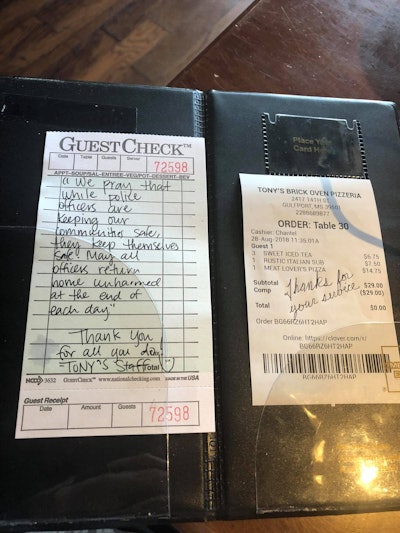 GUESTCHECK™
Date Table Guests Server
72598
APPT-SOUP/SAL-ENTREE-VEG/POT-DESSERT-BEV
"We pray that
while police
officers are
keeping our
communities safe,
they keep themselves
safe. May all
officers return
home unharmed
at the end of
each day"
Thank you
for all you do!
-TONY'S Staff
3632 GUESTCHECK™ www.nationalchecking.com MADE IN THE USA
Guest Receipt
Date Amount Guests
72598
Place Your
Card Here
TONY'S BRICK OVEN PIZZERIA
2417 14TH ST
GULFPORT, MS 39501
2288689877
ORDER: Table 30
Cashier: Chantel
28-Aug-2018 11:35:01A
Guest 1
3 SWEET ICED TEA $6.75
1 RUSTIC ITALIAN SUB $7.50
1 MEAT LOVER'S PIZZA $14.75
Subtotal $29.00
Comp ($29.00)
Thanks for
your service
Total $0.00
Order BG66RZ6HT2HAP
Online: https://clover.com/r/
BG66RZ6HT2HAP
BG66RZ6HT2HAP